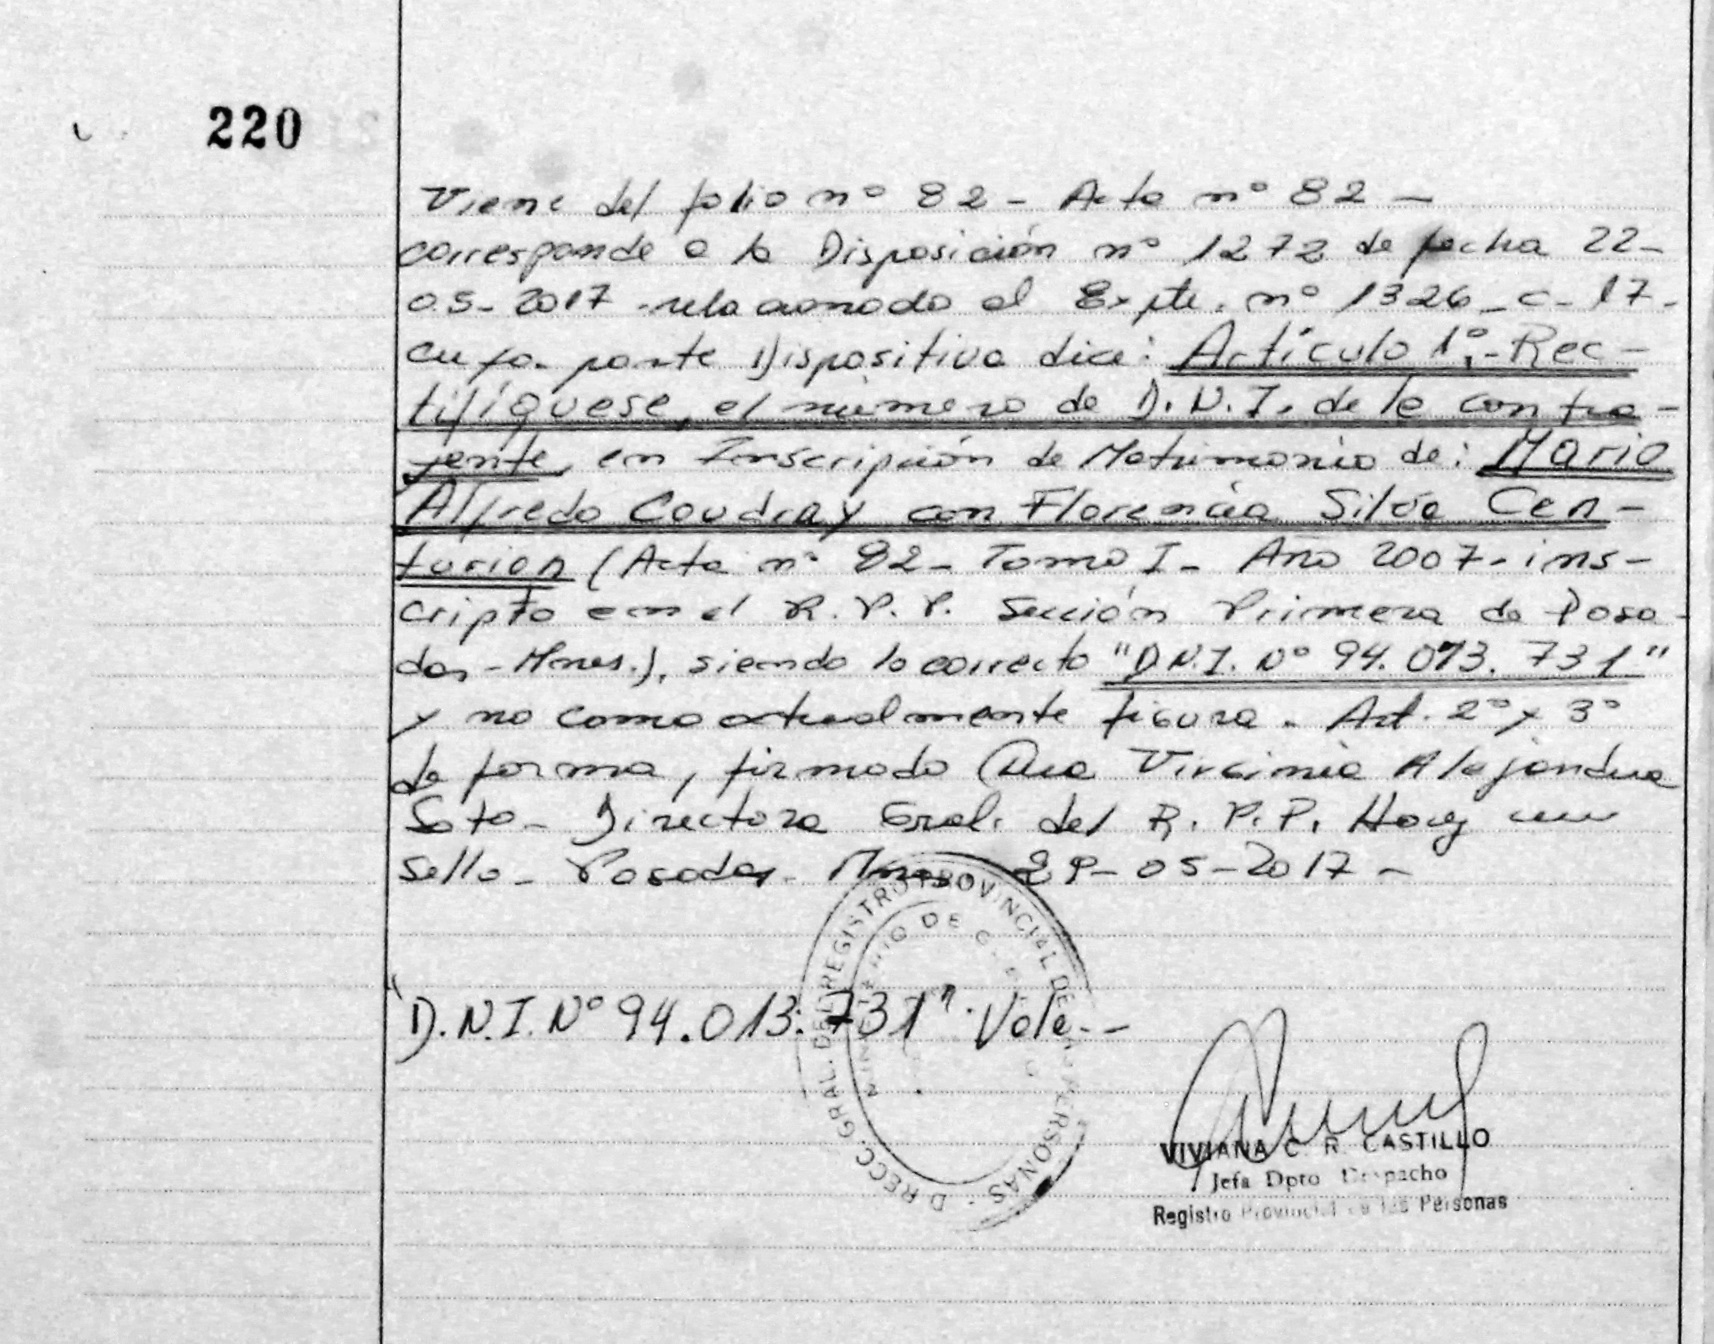 220
Viene del folio nº 82 - Acta nº 82 -
corresponde a la Disposición nº 1272 de fecha 22-
05-2017 relacionado al Expte. nº 1326-C-17-
cuya parte Dispositiva dice: Artículo 1º.- Rec-
tifíquese, el número de D.N.I. de la contra-
yente, en Inscripción de Matrimonio de: Mario
Alfredo Coudray con Florencia Silva Cen-
turion (Acta nº 82 - Tomo I - Año 2007 - ins-
cripto en el R.P.P. Sección Primera de Posa-
das - Mnes.), siendo lo correcto "D.N.I. Nº 94.013.731"
y no como actualmente figura. Art. 2º y 3º
de forma, firmado Dra Virginia Alejandra
Soto - Directora Gral. del R.P.P. Hay un
sello - Posadas - Mnes. 29-05-2017 -
"D.N.I. Nº 94.013.731" Vale.-
DIRECC. GRAL. DEL REGISTRO PROVINCIAL DE LAS PERSONAS
MINISTERIO DE
VIVIANA C. R. CASTILLO
Jefa Dpto Despacho
Registro Provincial de las Personas